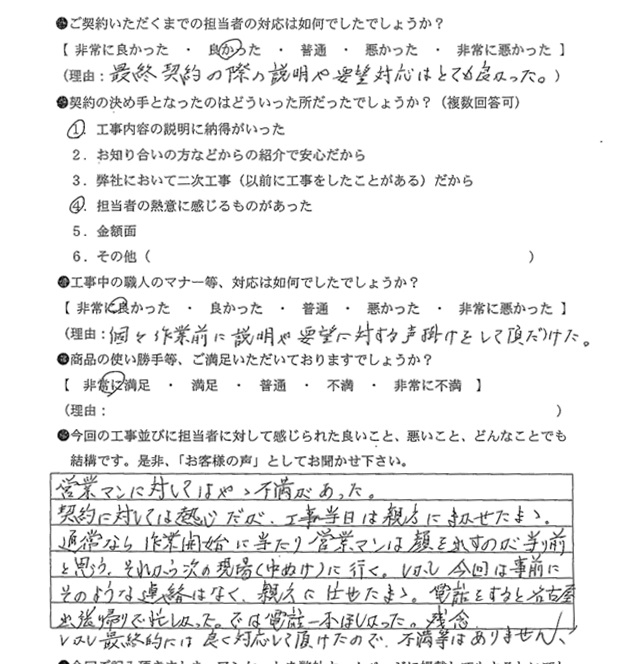 ●ご契約いただくまでの担当者の対応は如何でしたでしょうか？
【 非常に良かった ・ 良かった ・ 普通 ・ 悪かった ・ 非常に悪かった 】
（理由：最終契約の際の説明や要望対応はとても良かった。）
●契約の決め手となったのはどういった所だったでしょうか？（複数回答可）
１．工事内容の説明に納得がいった
２．お知り合いの方などからの紹介で安心だから
３．弊社において二次工事（以前に工事をしたことがある）だから
４．担当者の熱意に感じるものがあった
５．金額面
６．その他（ ）
●工事中の職人のマナー等、対応は如何でしたでしょうか？
【 非常に良かった ・ 良かった ・ 普通 ・ 悪かった ・ 非常に悪かった 】
（理由：個々作業前に説明や要望に対する声掛けをして頂だけた。
●商品の使い勝手等、ご満足いただいておりますでしょうか？
【 非常に満足 ・ 満足 ・ 普通 ・ 不満 ・ 非常に不満 】
（理由： ）
●今回の工事並びに担当者に対して感じられた良いこと、悪いこと、どんなことでも
結構です。是非、「お客様の声」としてお聞かせ下さい。
営業マンに対してはやゝ不満があった。
契約に対しては熱心だが、工事当日は親方にまかせたまゝ。
通常なら作業開始に当たり営業マンは顔を出すのが当り前
と思う。それから次の現場(中ぬけ)に行く。しかし今回は事前に
そのような連絡はなく、親方に任せたまゝ。電話をすると名古屋
出張帰りで忙しかった。では電話一本ほしかった。残念
しかし最終的には良く対応して頂けたので、不満等はありません